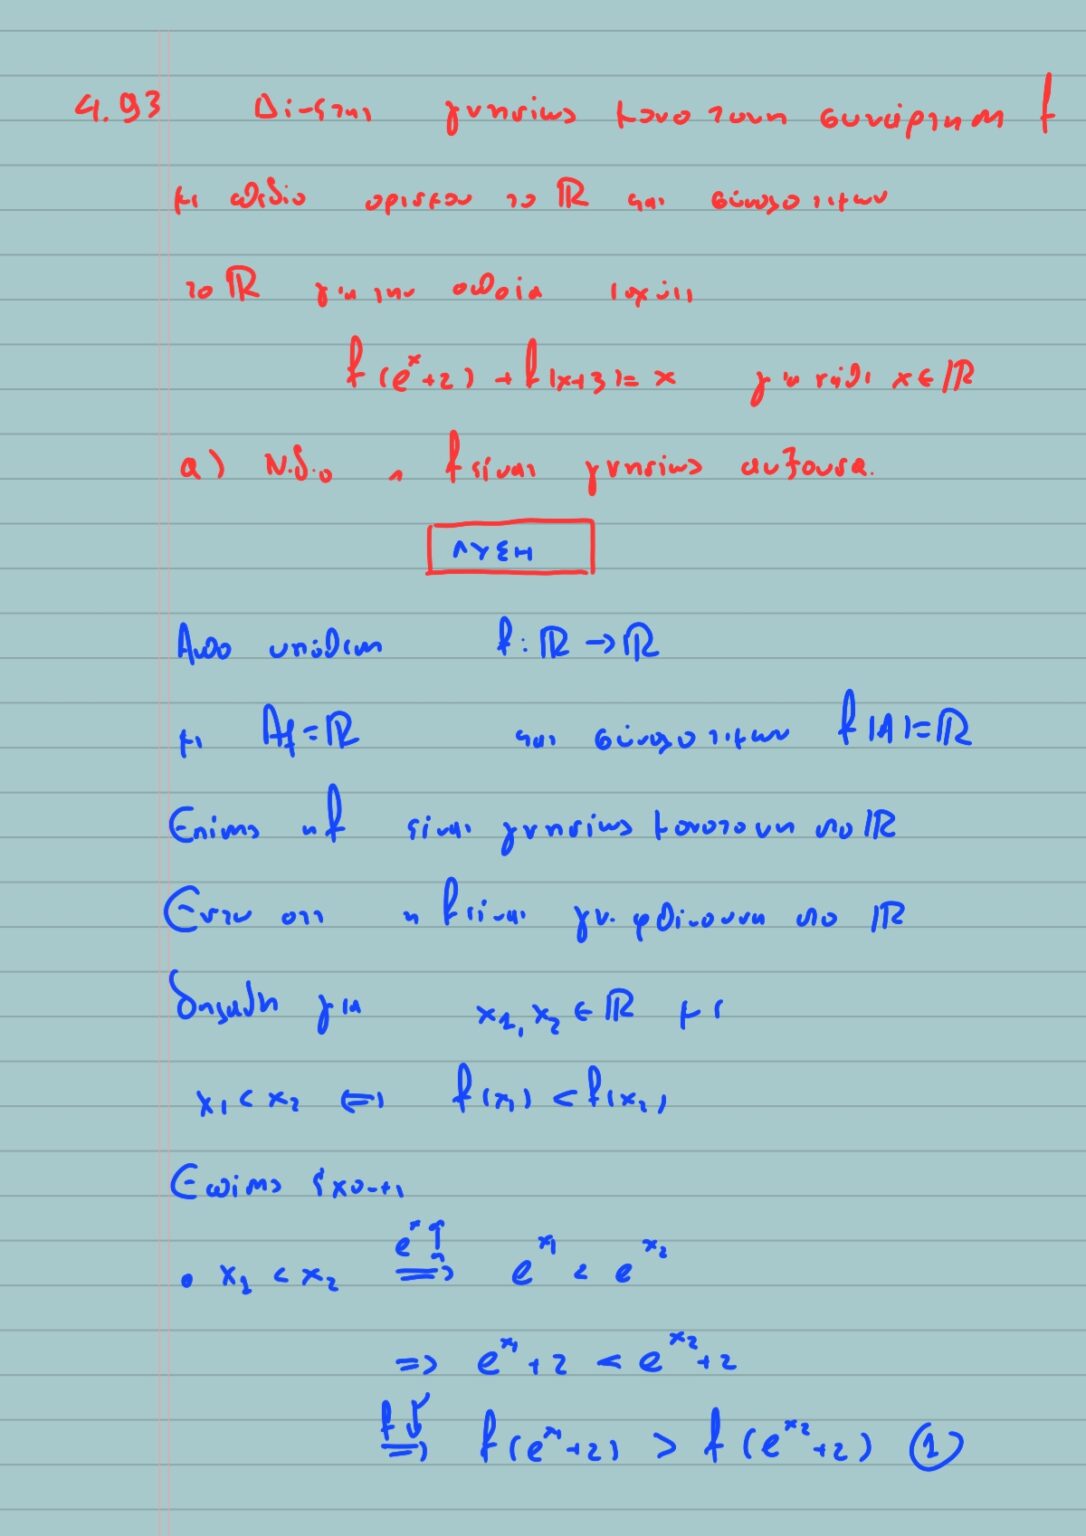 4.93 Δίνεται γνησίως μονότονη συνάρτηση f
με πεδίο ορισμού το ℝ και σύνολο τιμών
το ℝ για την οποία ισχύει
f(e^x+2)+f(x+3)=x για κάθε x∈ℝ
α) Ν.δ.ο η f είναι γνησίως αύξουσα.
ΛΥΣΗ
Από υπόθεση f:ℝ→ℝ
με A_f=ℝ και σύνολο τιμών f(A)=ℝ
Επίσης η f είναι γνησίως μονότονη στο ℝ
Έστω ότι η f είναι γν. φθίνουσα στο ℝ
δηλαδή για x₁,x₂∈ℝ με
x₁<x₂ ⇔ f(x₁)<f(x₂)
Επίσης έχουμε
• x₁<x₂ e^x↑⇒ e^x₁<e^x₂
⇒ e^x₁+2<e^x₂+2
f↓⇒ f(e^x₁+2)>f(e^x₂+2) ①